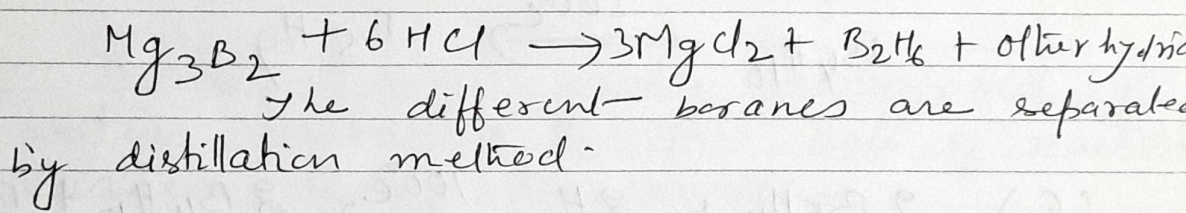 Mg₃B₂ + 6 HCl → 3MgCl₂ + B₂H₆ + other hydric
The different boranes are separated
by distillation method.